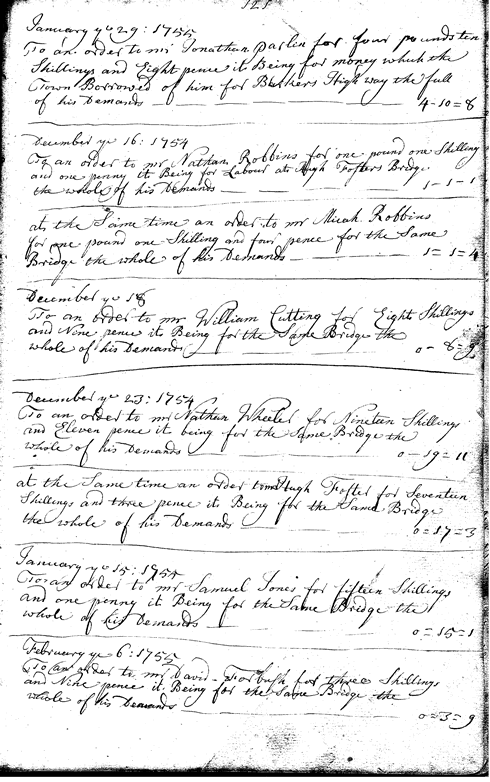 121
January ye 29: 1755
To an order to mr Jonathan Parlen for four pounds ten
Shillings and Eight pence it Being for money which the
Town Borrowed of him for Barkers High way the full
of his Demands 4-10=8
December ye 16: 1754
To an order to mr Nathan Robbins for one pound one Shilling
and one penny it Being for Labour at Hugh Fosters Bridge
the whole of his Demands 1-1-1
at the Same time an order to mr Micah Robbins
for one pound one Shilling and four pence for the Same
Bridge the whole of his Demands 1=1=4
December ye 18
To an order to mr William Cutting for Eight Shillings
and Nine pence it Being for the Same Bridge the
whole of his Demands 0-8=9
December ye 23: 1754
To an order to mr Nathan Wheeler for Nineteen Shillings
and Eleven pence it being for the Same Bridge the
whole of his Demands 0-19=11
at the Same time an order to mr Hugh Foster for Seventeen
Shillings and three pence it Being for the Same Bridge
the whole of his Demands 0=17=3
January ye 15: 1754
To an order to mr Samuel Jones for fifteen Shillings
and one penny it Being for the Same Bridge the
whole of his Demands 0=15=1
February ye 6: 1755
To an order to mr David Forbush for three Shillings
and Nine pence it Being for the Same Bridge the
whole of his Demands 0=3=9